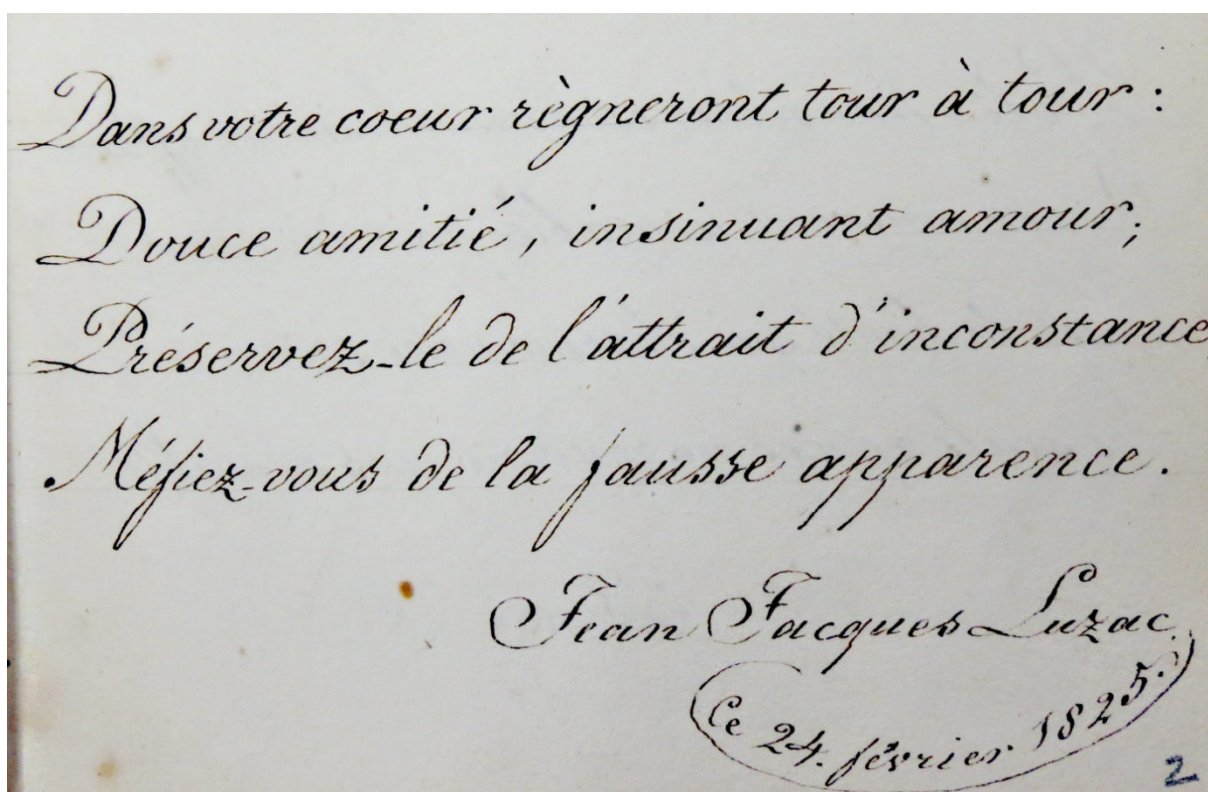 Dans votre coeur règneront tour à tour :
Douce amitié, insinuant amour;
Préservez-le de l'attrait d'inconstance,
Méfiez-vous de la fausse apparence.
Jean Jacques Luzac.
Ce 24. février 1825.
2